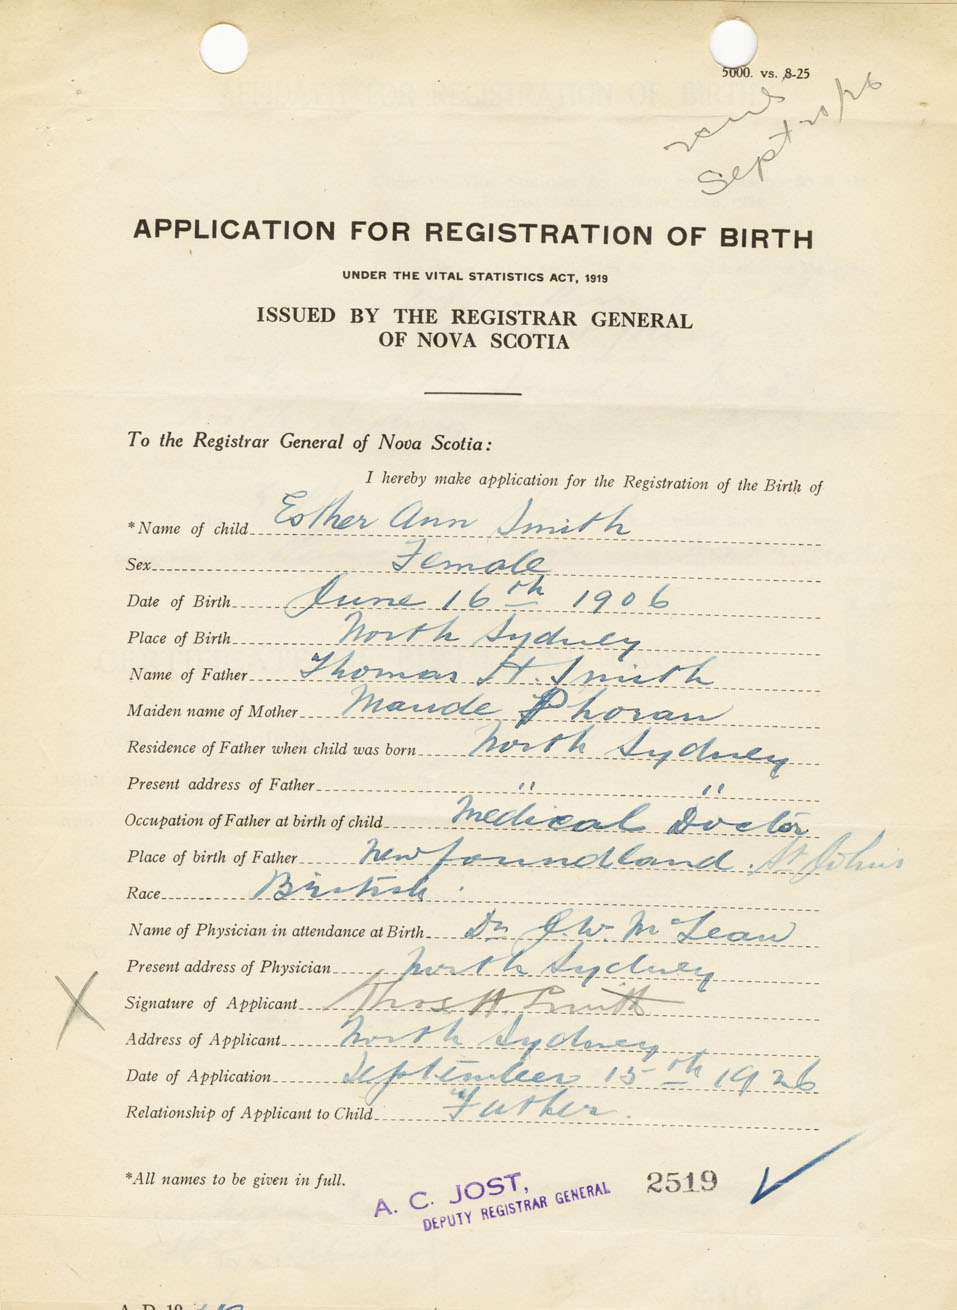 5000. vs. 8-25
Sept 20/26
APPLICATION FOR REGISTRATION OF BIRTH
UNDER THE VITAL STATISTICS ACT, 1919
ISSUED BY THE REGISTRAR GENERAL
OF NOVA SCOTIA
To the Registrar General of Nova Scotia:
I hereby make application for the Registration of the Birth of
*Name of child Esther Ann Smith
Sex Female
Date of Birth June 16th 1906
Place of Birth North Sydney
Name of Father Thomas H. Smith
Maiden name of Mother Maude Phoran
Residence of Father when child was born North Sydney
Present address of Father " "
Occupation of Father at birth of child Medical Doctor
Place of birth of Father Newfoundland. St Johns
Race British.
Name of Physician in attendance at Birth Dr J. W. McLean
Present address of Physician North Sydney
Signature of Applicant Thos H. Smith
Address of Applicant North Sydney
Date of Application September 15th 1926
Relationship of Applicant to Child Father.
*All names to be given in full.
A. C. JOST,
DEPUTY REGISTRAR GENERAL
2519
A. D. 19